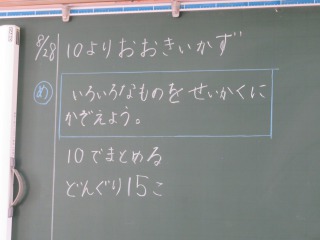 8/28 10よりおおきいかず
め いろいろなものをせいかくに
かぞえよう。
10でまとめる
どんぐり15こ